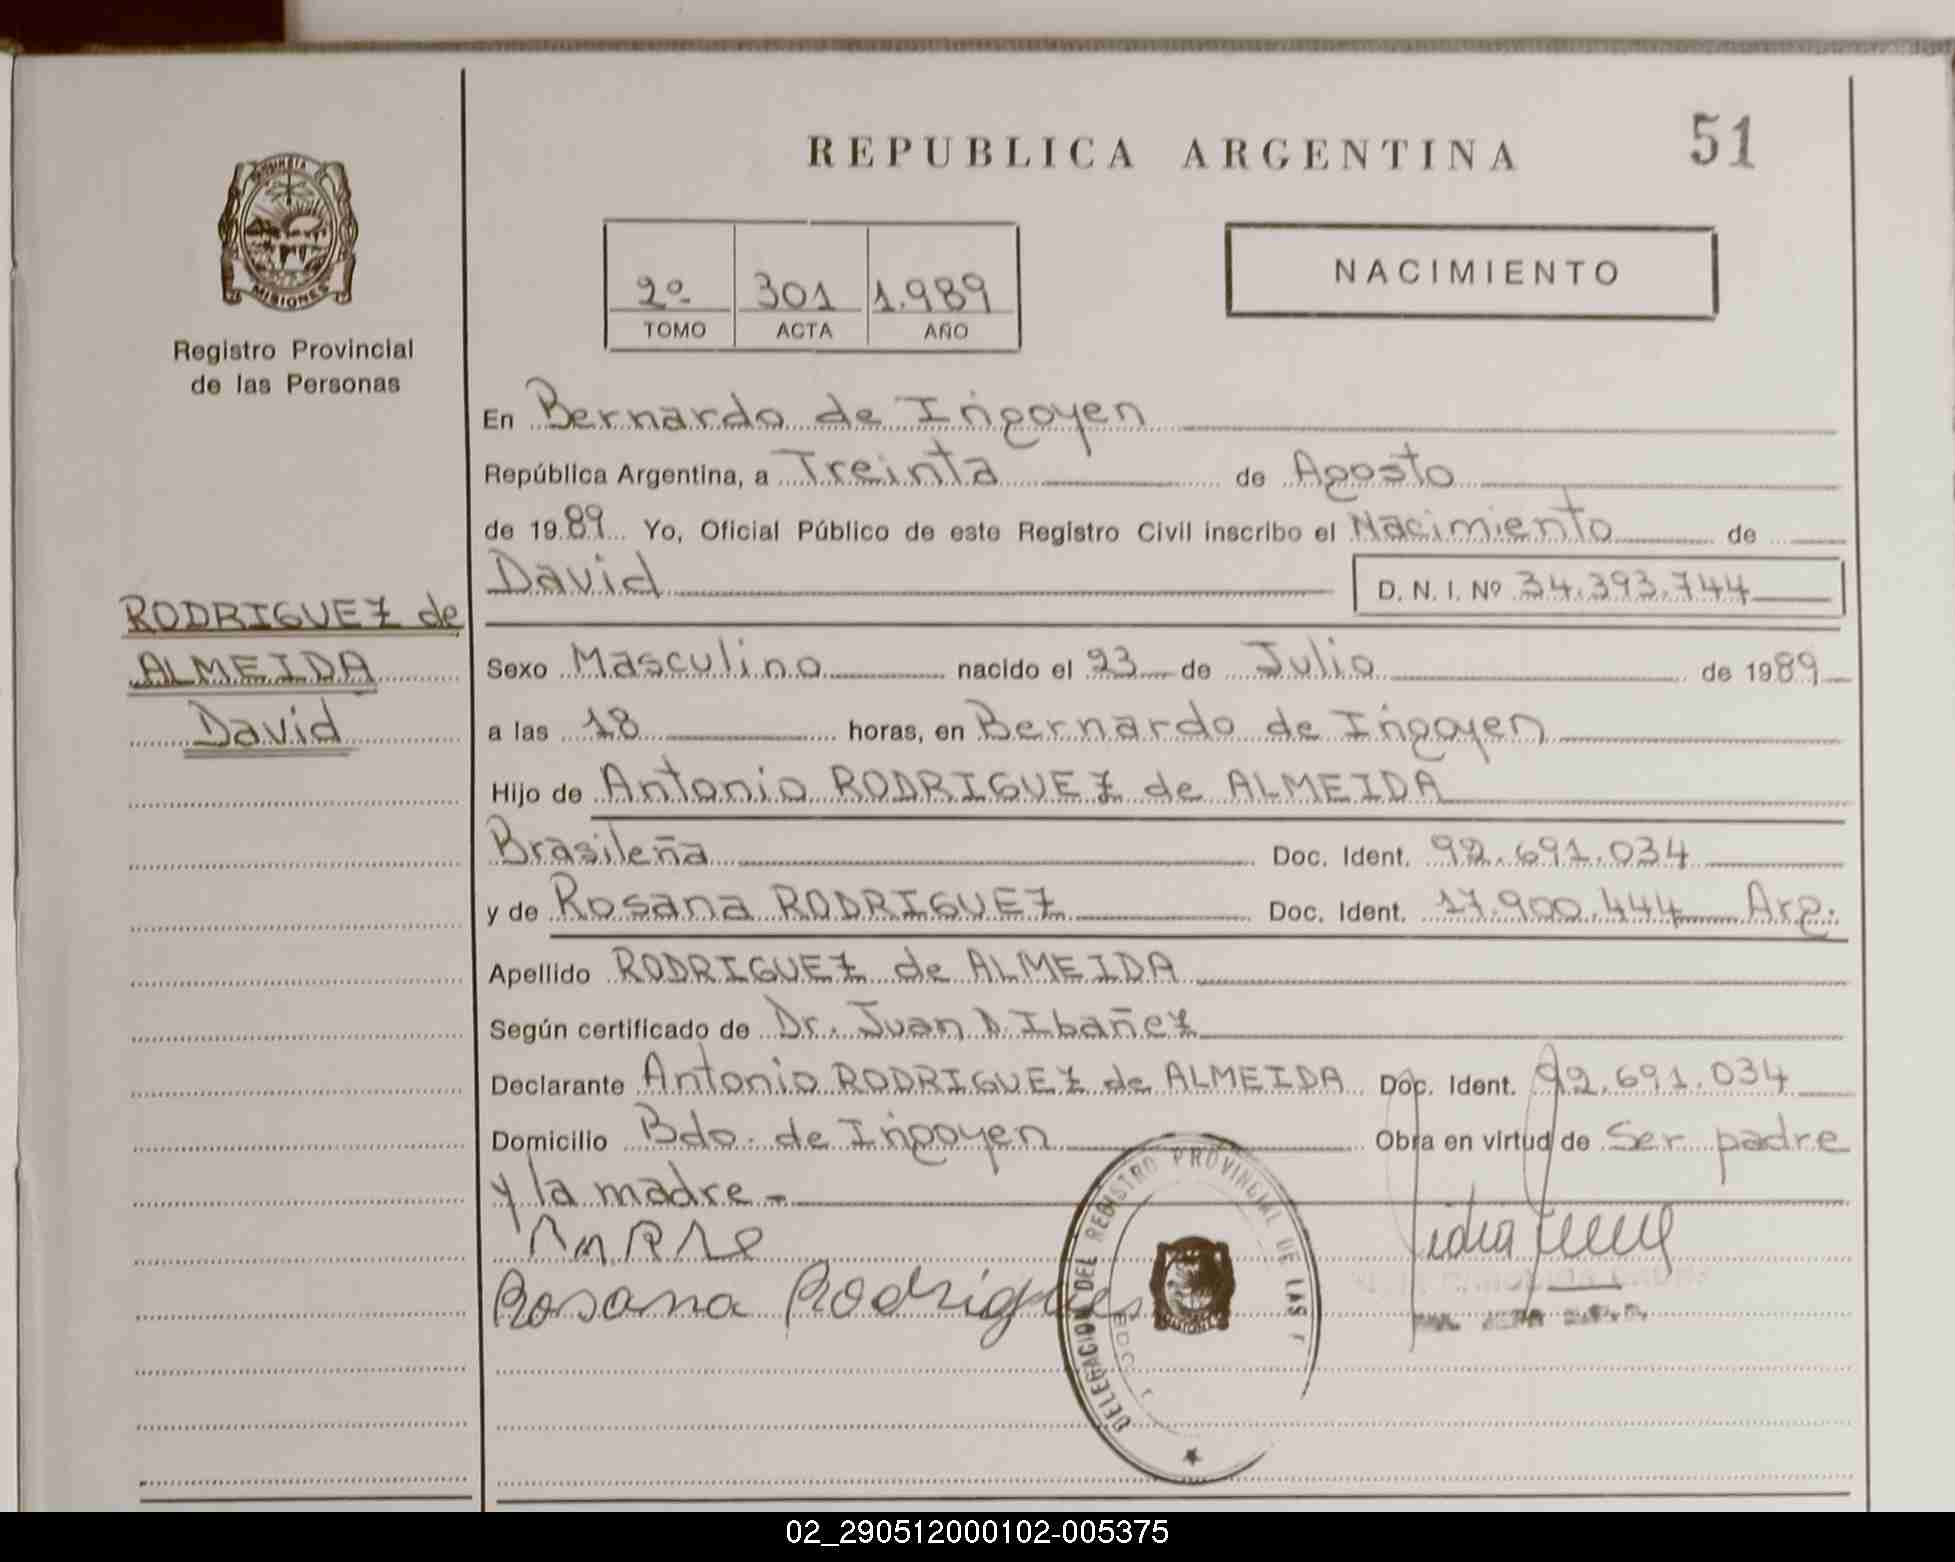 REPUBLICA ARGENTINA
51
PROVINCIA
MISIONES
Registro Provincial
de las Personas
2º 301 1.989
TOMO ACTA AÑO
NACIMIENTO
En Bernardo de Irigoyen
República Argentina, a Treinta de Agosto
de 1989 Yo, Oficial Público de este Registro Civil inscribo el Nacimiento de
David D. N. I. Nº 34.393.744
RODRIGUEZ de
ALMEIDA
David
Sexo Masculino nacido el 23 de Julio de 1989
a las 18 horas, en Bernardo de Irigoyen
Hijo de Antonio RODRIGUEZ de ALMEIDA
Brasileña Doc. Ident. 92.691.034
y de Rosana RODRIGUEZ Doc. Ident. 17.900.444 Arg.
Apellido RODRIGUEZ de ALMEIDA
Según certificado de Dr. Juan D. Ibañez
Declarante Antonio RODRIGUEZ de ALMEIDA Doc. Ident. 92.691.034
Domicilio Bdo. de Irigoyen Obra en virtud de Ser padre
y la madre.-
Rosana Rodrigues
DELEGACION DEL REGISTRO PROVINCIAL DE LAS
MISIONES
02_290512000102-005375